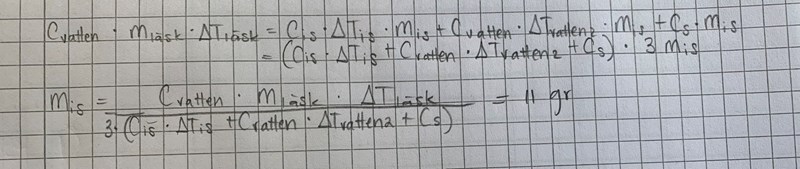 Cvatten · mläsk · ΔTläsk = Cis · ΔTis · mis + Cvatten · ΔTvatten2 · mis + Cs · mis
= (Cis · ΔTis + Cvatten · ΔTvatten2 + Cs) · 3 mis
mis = Cvatten · mläsk · ΔTläsk / 3 · (Cis · ΔTis + Cvatten · ΔTvatten2 + Cs) = 11 gr